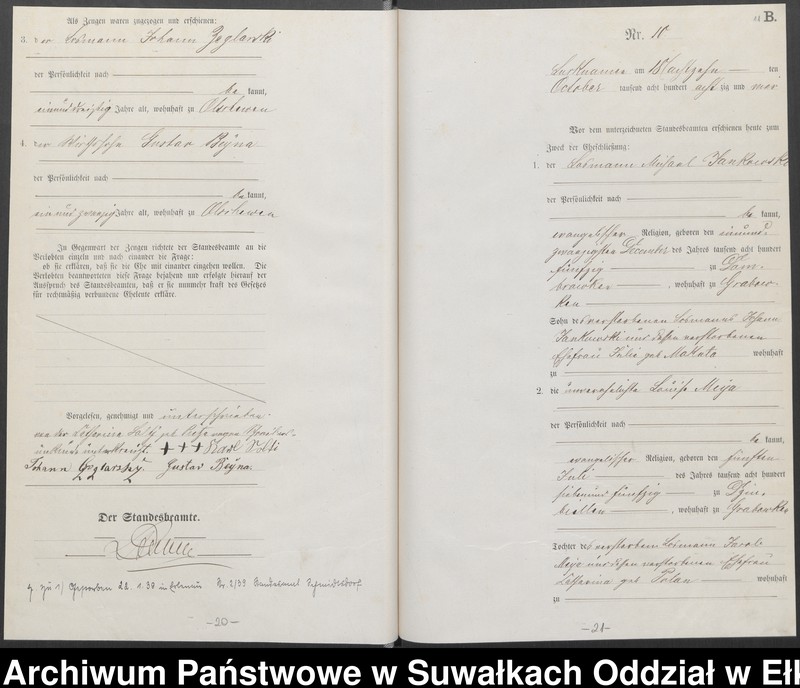 Als Zeugen waren zugezogen und erschienen:
3. der Losmann Johann Zeglarski
der Persönlichkeit nach
be kannt,
einunddreißig Jahre alt, wohnhaft zu
4. der Wirthssohn Gustav Beyna
der Persönlichkeit nach
be kannt,
einundzwanzig Jahre alt, wohnhaft zu
In Gegenwart der Zeugen richtete der Standesbeamte an die
Verlobten einzeln und nach einander die Frage:
ob sie erklären, daß sie die Ehe mit einander eingehen wollen. Die
Verlobten beantworteten diese Frage bejahend und erfolgte hierauf der
Ausspruch des Standesbeamten, daß er sie nunmehr kraft des Gesetzes
für rechtmäßig verbundene Eheleute erkläre.
Vorgelesen, genehmigt und unterschrieben
von der geb wegen
unterkreuzt. +++ Karl
Johann Gustav Beyna.
Der Standesbeamte.
zu 1) Gestorben 22. 1. 39 in Nr. 2/39 Standesamt
-20-
B.
Nr. 10
am 18 achtzehn ten
October tausend acht hundert acht zig und vier
Vor dem unterzeichneten Standesbeamten erschienen heute zum
Zweck der Eheschließung:
1. der Losmann Michael Jankowski
der Persönlichkeit nach
be kannt,
evangelischer Religion, geboren den einund-
zwanzigsten December des Jahres tausend acht hundert
fünfzig zu Dom-
browken, wohnhaft zu Grabow-
ken
Sohn des verstorbenen Losmanns Johann
Jankowski und dessen verstorbenen
Ehefrau Julie geb Makuta wohnhaft
zu
2. die unverehelichte Louise Meya
der Persönlichkeit nach
be kannt,
evangelischer Religion, geboren den fünften
Juli des Jahres tausend acht hundert
siebenund fünfzig zu
, wohnhaft zu Grabowken
Tochter des verstorbenen Losmann Jacob
Meya und dessen verstorbenen Ehefrau
Catharina geb Polan wohnhaft
zu
-21-
Archiwum Państwowe w Suwałkach Oddział w Ełk